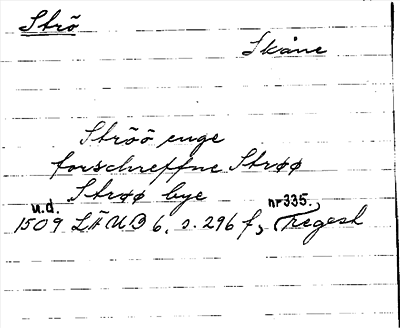 Strö
Skåne
Ströö enge
forschreffne Strøø
Strøø bye
u.d. nr335.,
1509 LÄUB 6, s. 296 f, Regest